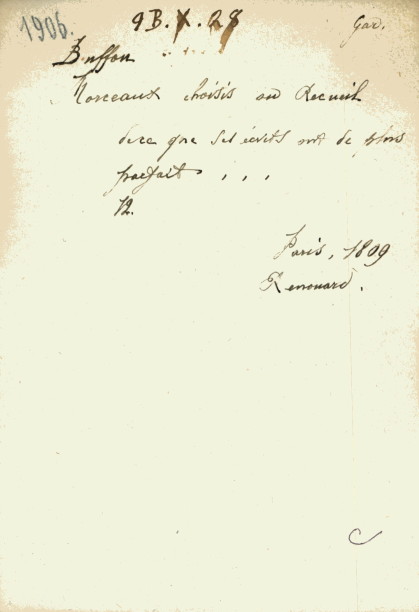 1906.
9B.X.28
Gar.
Buffon
Morceaux choisis ou Recueil
de ce que ses écrits ont de plus
parfait . . .
12.
Paris, 1809
Renouard.